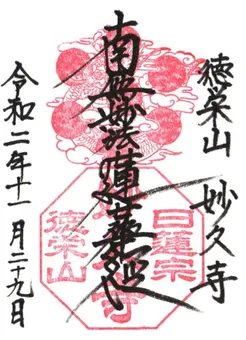 徳栄山 妙久寺
南無妙法蓮華経
令和二年十一月二十九日
日蓮宗
徳栄山